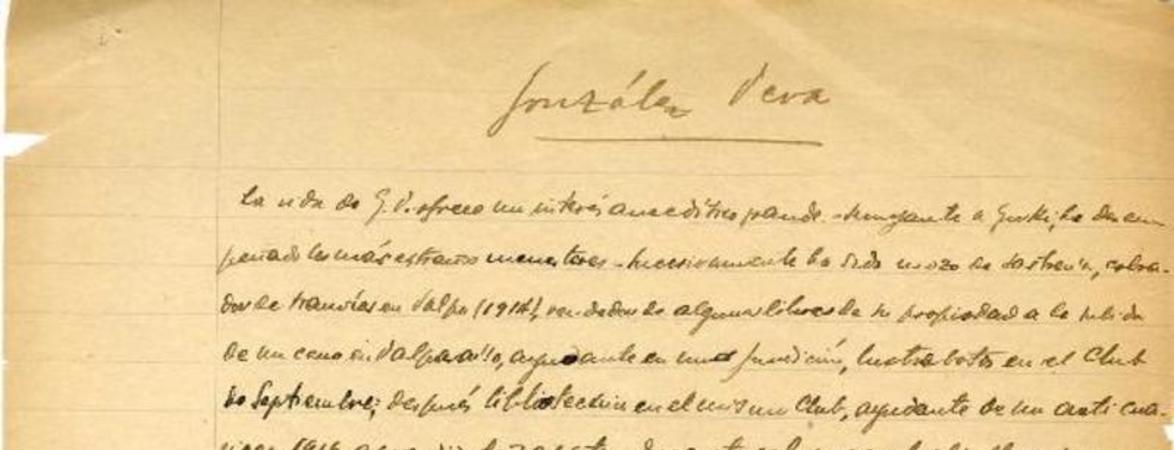 González Vera
La vida de G.V. ofrece un interés anecdótico grande. Semejante a Gorki, ha desem
peñado los más extraños menesteres. Sucesivamente ha sido mozo de sastrería, cobra-
dor de tranvías en Valpo (1914), vendedor de algunos libros de su propiedad a la subida
de un cerro en Valparaíso, ayudante en una fundición, lustrabotas en el Club
de Septiembre; después bibliotecario en el mismo Club, ayudante de un anticua-